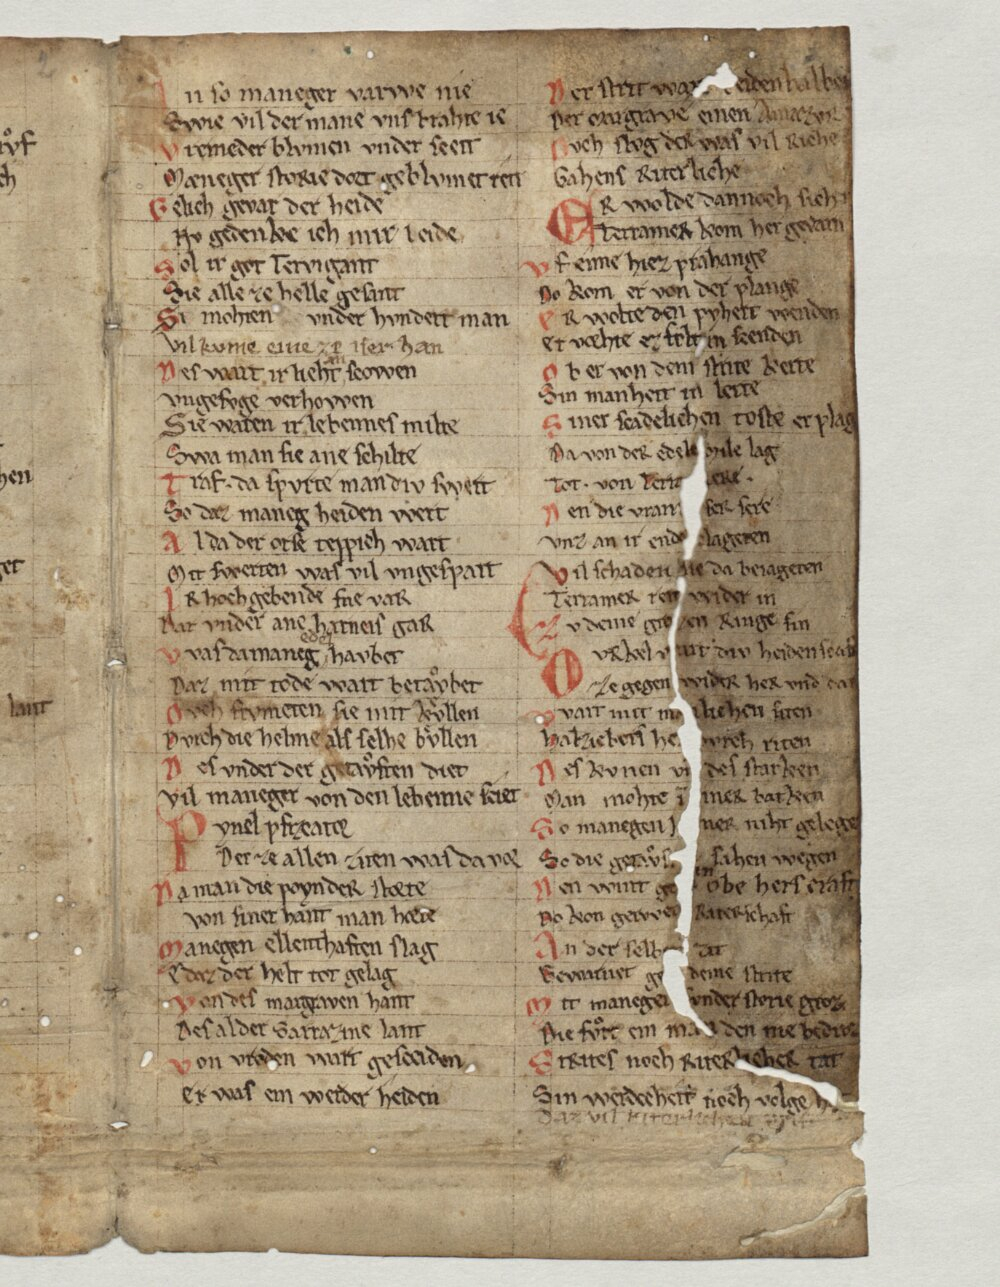 ch
hen
get
lant
In so maneger varwe nie
Swie vil der mane vns brahte ie
Vremeder blvmen vnder seen
Maneger storie dort geblvmet ien
Gelich gevar der heide
Nv gedenke ich mir leide
Sol ir got Tervigant
Sie alle ze helle gesant
Si mohten vnder hvndert man
vil kvme eine ze iser han
Des wart ir lieht scowen
vngefvge verhowen
Sie waren ir lebennes milte
Swa man sie ane schilte
Traf. da spvrte man div swert
So daz maneg heiden wert
Al da der orse teppich wart
Mit swerten was vil vngespart
Ir hoch gebende sne var
Dar vnder ane harneis gar
Vvas da maneg edel havbet
Daz mit tode wart betavbet
Ovch rvmeten sie mit kvllen
Dvrch die helme als selhe bvllen
Des vnder der getavften diet
vil maneger von den lebenne sciet
Pynel p fiz cator
Der ze allen ziten was da vor
Da man die poynder storte
von siner hant man horte
Manegen ellenthaften slag
E daz der helt tot gelag
Von des margraven hant
Des alder Sarrazine lant
Von vreden wart gesceiden
Er was ein werder heiden
Der strit was heidenhalbe
Der margrave einen
Ovch slvg der was vil riche
Gahens riterliche
Er wolde dannoch sich
Terramer kom her gevarn
Vf einne hiez prahange
Do kom er von der plange
Er wolte den pyneiz wenden
er vorhte ez solt in scenden
Ob er von dem strite kerte
Sin manheit in lerte
Siner scadelichen toste er plag
Da von der edele mile lag
Tot. von
Den die vran ser sere
vnz an ir ende clageten
Vil schaden sie da beiageten
Terramer ten wider in
Zv deme grozen ringe sin
Ovch bel wart div heidenscaft
Ze gegen wider her vnd
Wart mit manlichen siten
halzibiers her dvrch riten
Des kvnen vn des starken
Man mohte iner barken
So manegen ner niht gelege
So die getavf sahen wegen
Den wint obe hers craft
Do kon gewer Riterschaft
An der selben zit
Gewarnet deme strite
Mit maneger svnder storie groz
Die fvrt ein man den nie bedroz
Strites noch riterlicher tat
Sin werdecheit noch volge
Daz vil riterlichen